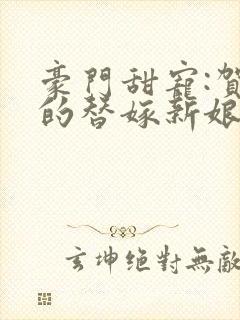 豪門甜寵:賀
的替嫁新娘
玄坤絕對無敵